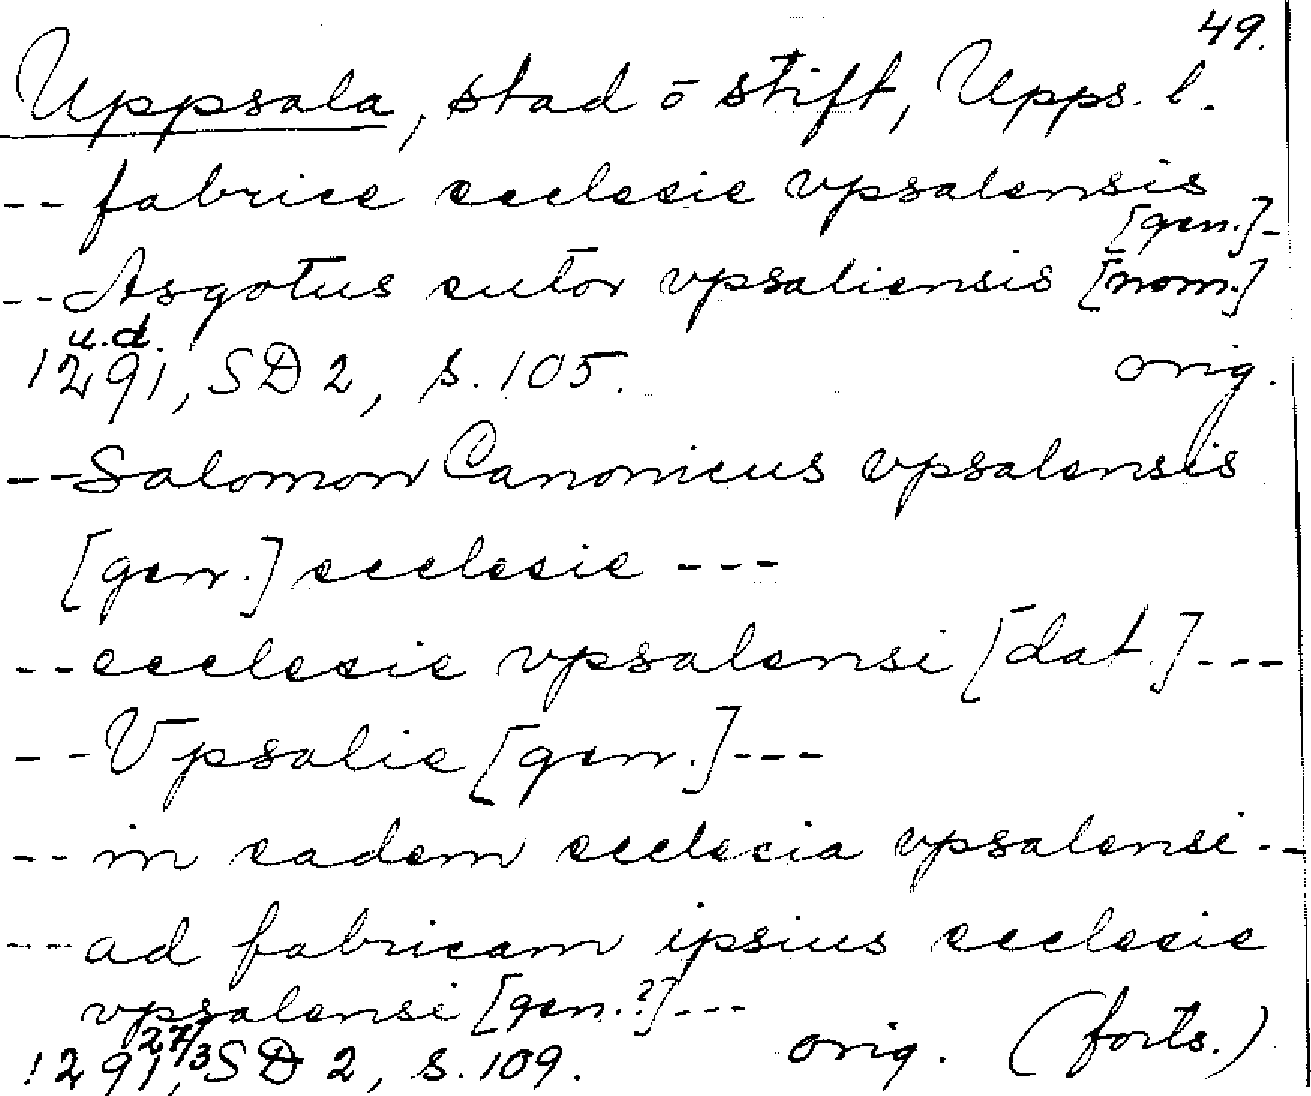 49.
Uppsala, stad o stift, Upps. l.
-- fabrice ecclesie vpsalensis
[gen.]-
-- Asgotus sutor vpsaliensis [nom.]
u.d.
1291, SD 2, s. 105. orig.
-- Salomon Canonicus vpsalensis
[gen.] ecclesie ---
-- ecclesie vpsalensi [dat.] ---
-- Vpsalie [gen.] ---
-- in eadem ecclecia vpsalensi --
--- ad fabricam ipsius ecclesie
vpsalensi [gen.?] ---
27/3
1291, SD 2, s. 109. orig. (forts.)